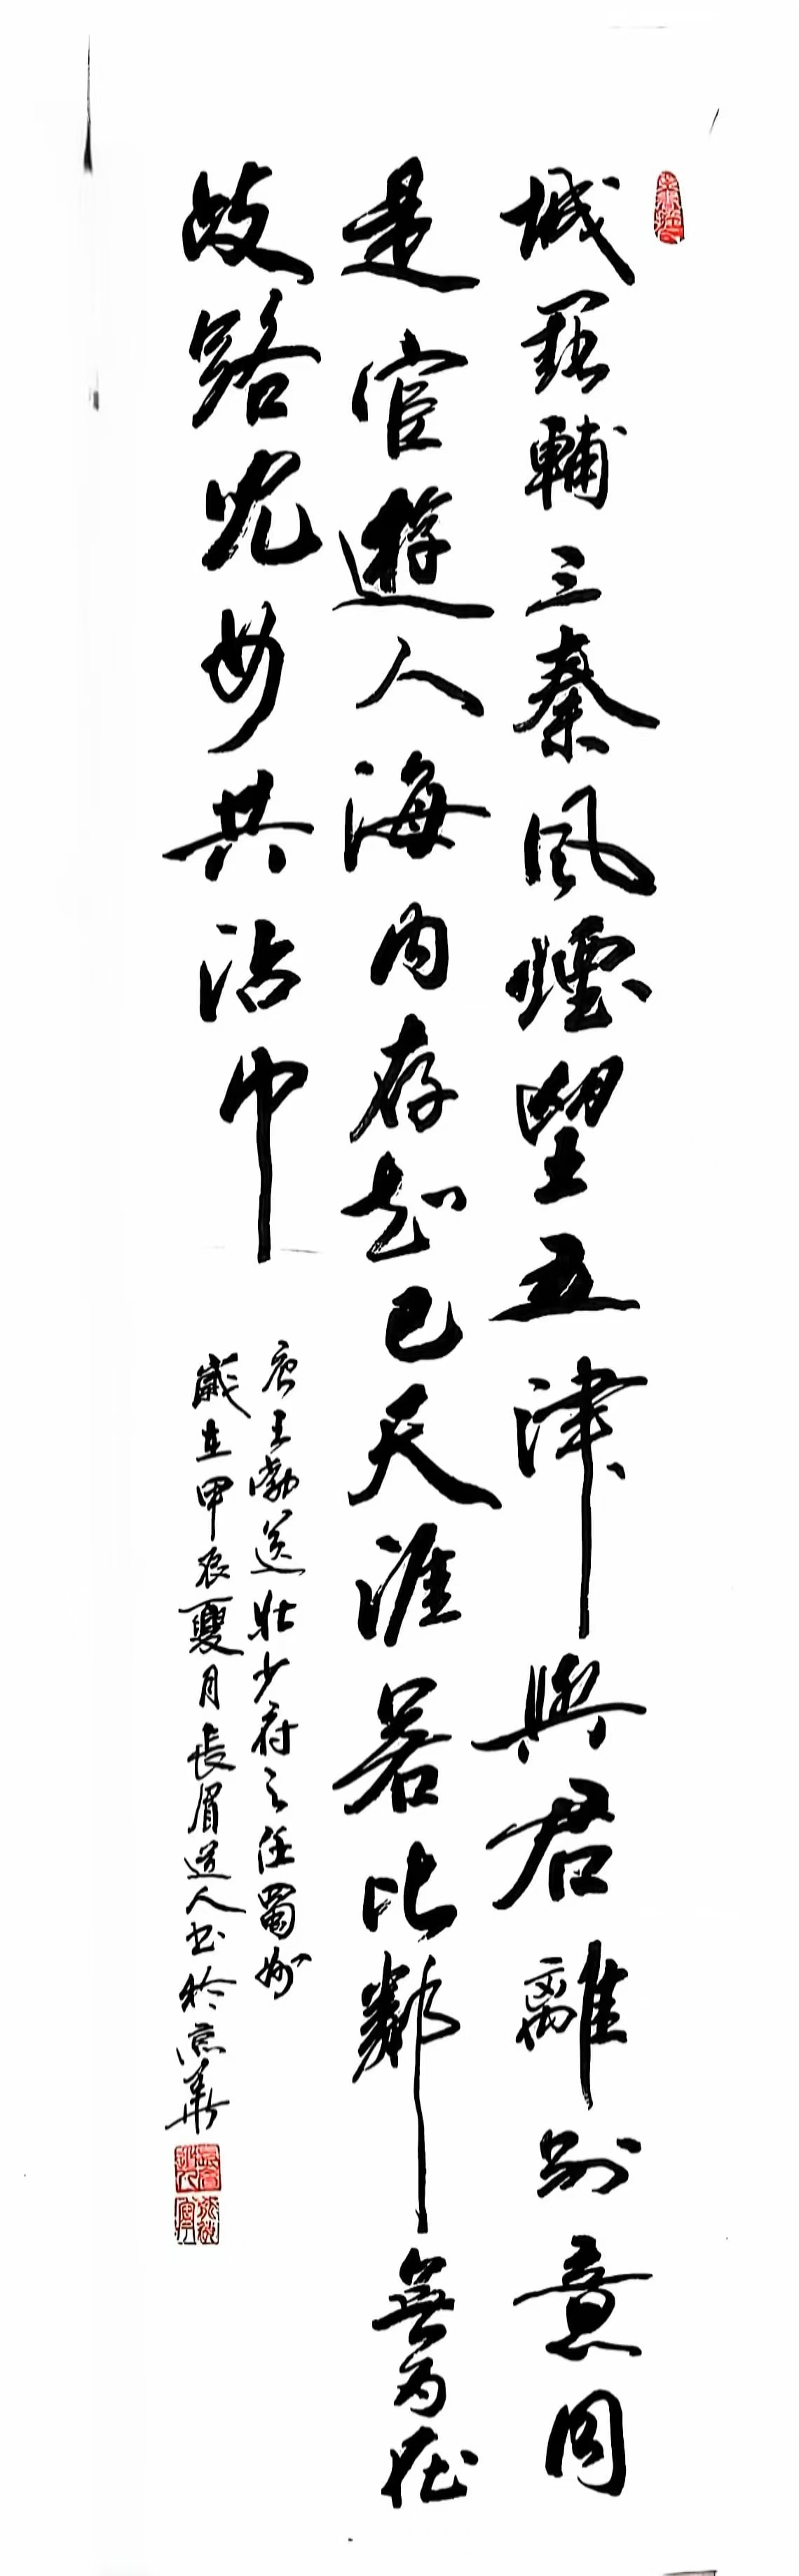 城闕輔三秦風煙望五津與君離别意同
是宦遊人海内存知己天涯若比鄰無為在
歧路兒女共沾巾
唐王勃送杜少府之任蜀州
歲在甲辰夏月長眉道人书於京華